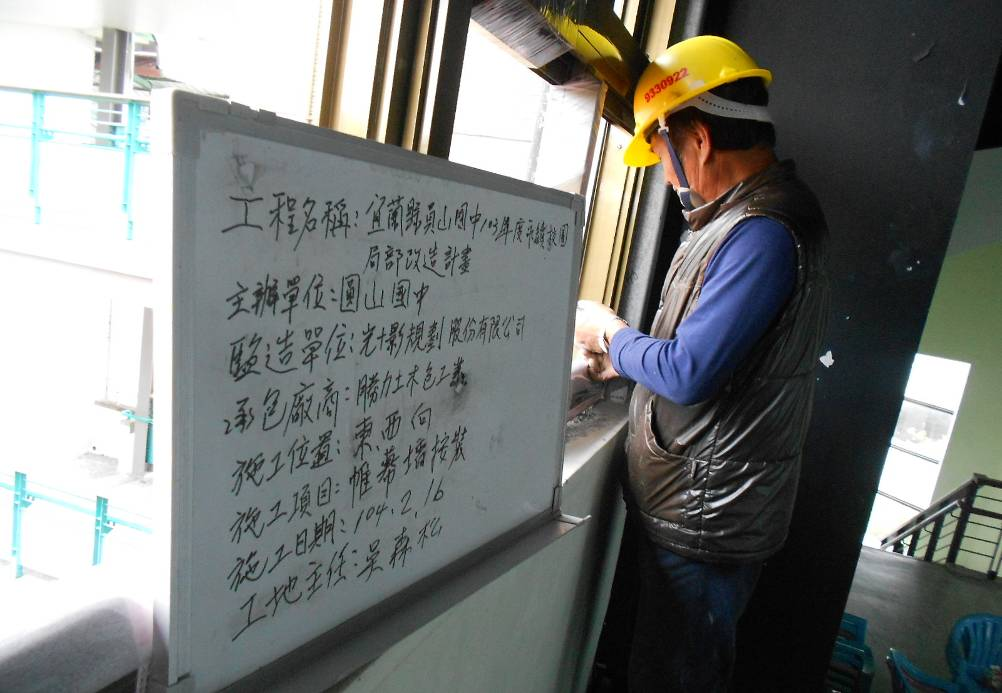 工程名稱:宜蘭縣員山國中103年度永續校園
局部改造計畫
主辦單位:圓山國中
監造單位:光十影規劃股份有限公司
承包廠商:勝力土木包工業
施工位置:東、西向
施工項目:帷幕牆按裝
施工日期:104.2.16
工地主任:吳森松
9330922